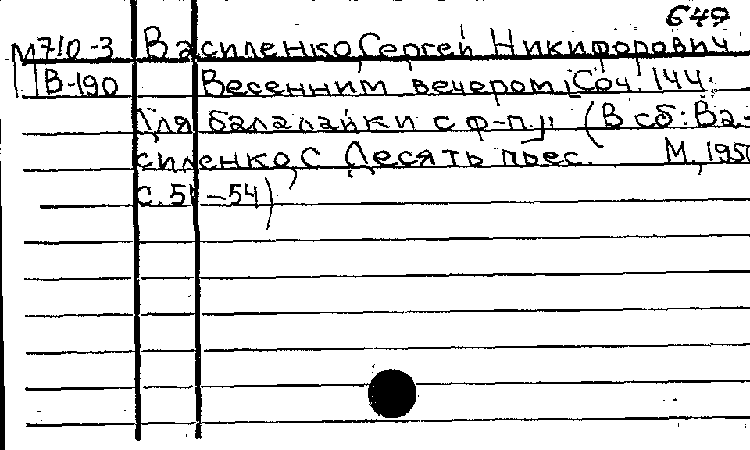 649
М710-3 Василенко, Сергей Никифорович
В-190 Весенним вечером, Соч. 144.
Для балалайки с ф-п.] (В сб: Ва-
силенко, С Десять пьес. М., 1950
с. 51-54)